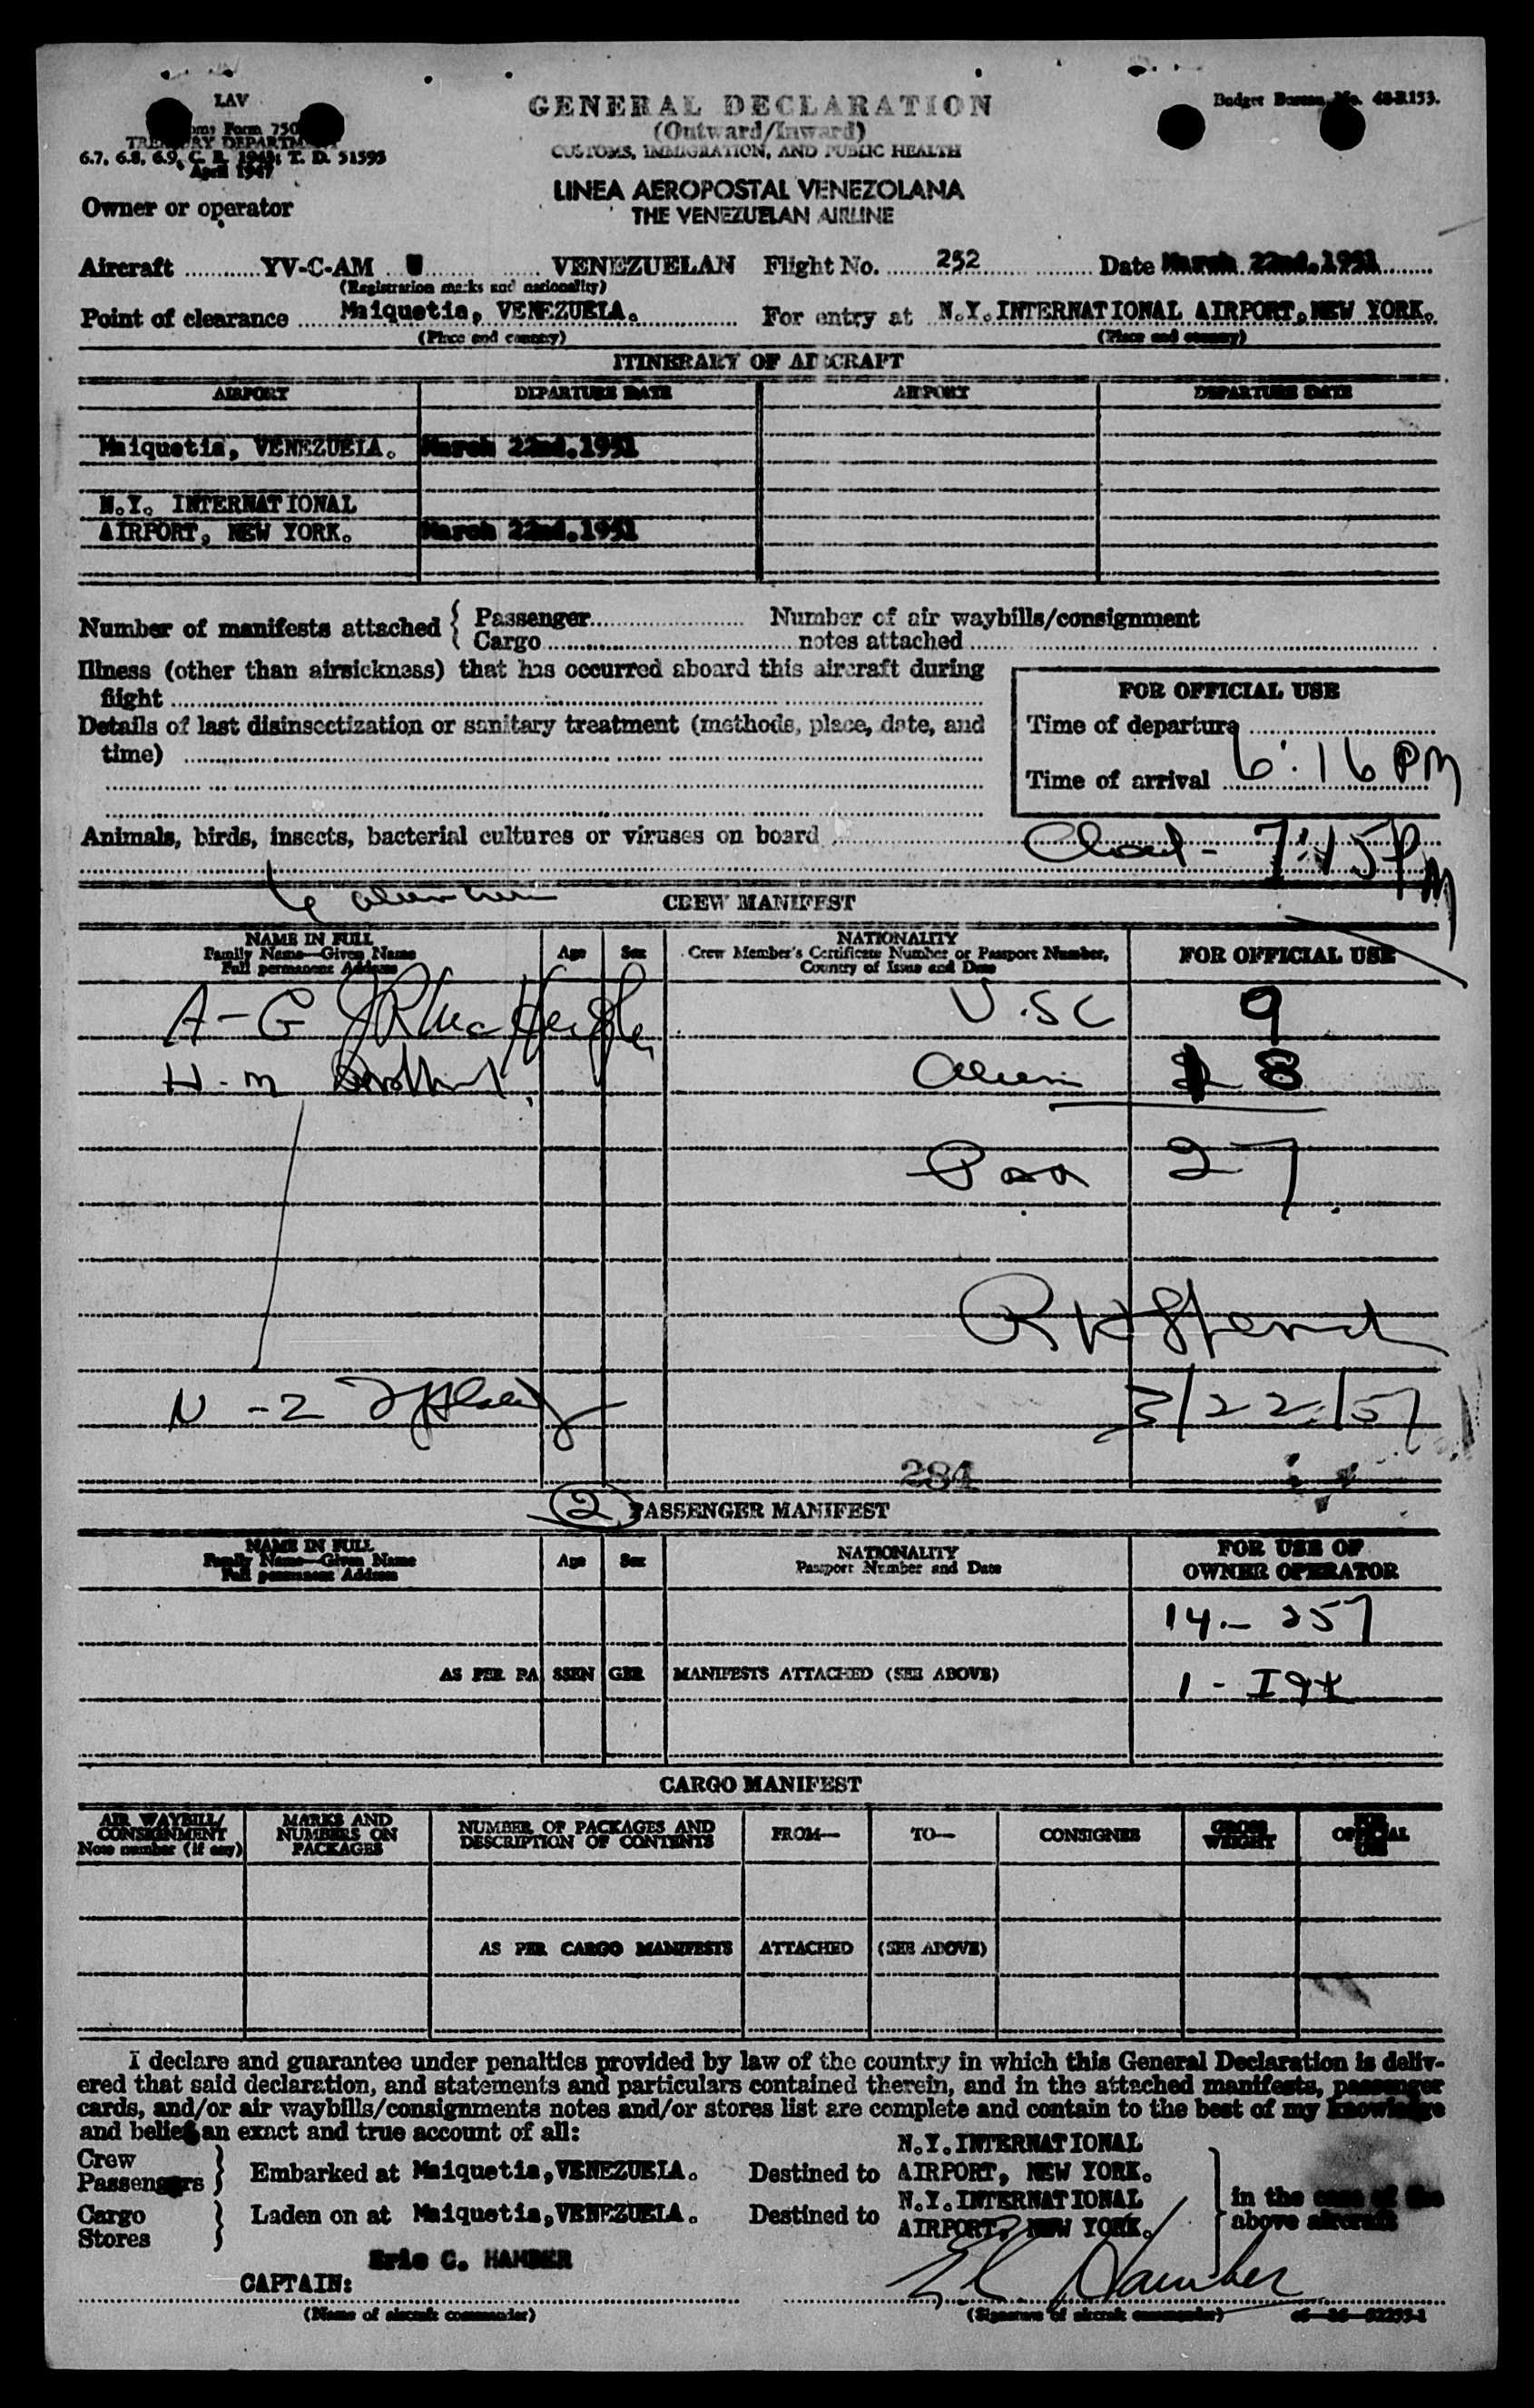 LAV
TREASURY DEPARTMENT
6.7, 6.8, 6.9, C. R. 1943; T. D. 51593
April 1947
GENERAL DECLARATION
(Outward/Inward)
CUSTOMS, IMMIGRATION, AND PUBLIC HEALTH
Budget Bureau No. 48-R153.
LINEA AEROPOSTAL VENEZOLANA
THE VENEZUELAN AIRLINE
Owner or operator
Aircraft YV-C-AM U VENEZUELAN Flight No. 252 Date March 22nd.1951
(Registration marks and nationality)
Point of clearance Maiquetia, VENEZUELA. For entry at N.Y.INTERNATIONAL AIRPORT,NEW YORK.
(Place and country) (Place and country)
ITINERARY OF AIRCRAFT
AIRPORT DEPARTURE DATE AIRPORT DEPARTURE DATE
Maiquetia, VENEZUELA. March 22nd.1951
N.Y. INTERNATIONAL
AIRPORT, NEW YORK. March 22nd.1951
Number of manifests attached { Passenger Number of air waybills/consignment
Cargo notes attached
Illness (other than airsickness) that has occurred aboard this aircraft during
flight
Details of last disinsectization or sanitary treatment (methods, place, date, and
time)
FOR OFFICIAL USE
Time of departure
Time of arrival 6:16 PM
Animals, birds, insects, bacterial cultures or viruses on board
7:45 PM
CREW MANIFEST
NAME IN FULL
Family Name—Given Name
Full permanent Address
Age Sex
NATIONALITY
Crew Member's Certificate Number or Passport Number,
Country of Issue and Date
FOR OFFICIAL USE
A-G U.S.C 9
H-M Alien 8
Pax 27
N-Z 3/22/51
284
2 PASSENGER MANIFEST
NAME IN FULL
Family Name—Given Name
Full permanent Address
Age Sex
NATIONALITY
Passport Number and Date
FOR USE OF
OWNER OPERATOR
14.- 257
AS PER PASSENGER MANIFESTS ATTACHED (SEE ABOVE)
1 -
CARGO MANIFEST
AIR WAYBILL/
CONSIGNMENT
Note number (if any)
MARKS AND
NUMBERS ON
PACKAGES
NUMBER OF PACKAGES AND
DESCRIPTION OF CONTENTS
FROM— TO— CONSIGNEE
GROSS
WEIGHT
FOR
OFFICIAL
USE
AS PER CARGO MANIFESTS ATTACHED (SEE ABOVE)
I declare and guarantee under penalties provided by law of the country in which this General Declaration is deliv-
ered that said declaration, and statements and particulars contained therein, and in the attached manifests, passenger
cards, and/or air waybills/consignments notes and/or stores list are complete and contain to the best of my knowledge
and belief an exact and true account of all:
Crew
Passengers } Embarked at Maiquetia,VENEZUELA. Destined to N.Y.INTERNATIONAL AIRPORT, NEW YORK.
Cargo
Stores } Laden on at Maiquetia,VENEZUELA. Destined to N.Y.INTERNATIONAL AIRPORT, NEW YORK.
} in the case of the
above aircraft
Eric C. HAMBER
CAPTAIN:
E C Hamber
(Name of aircraft commander) (Signature of aircraft commander)